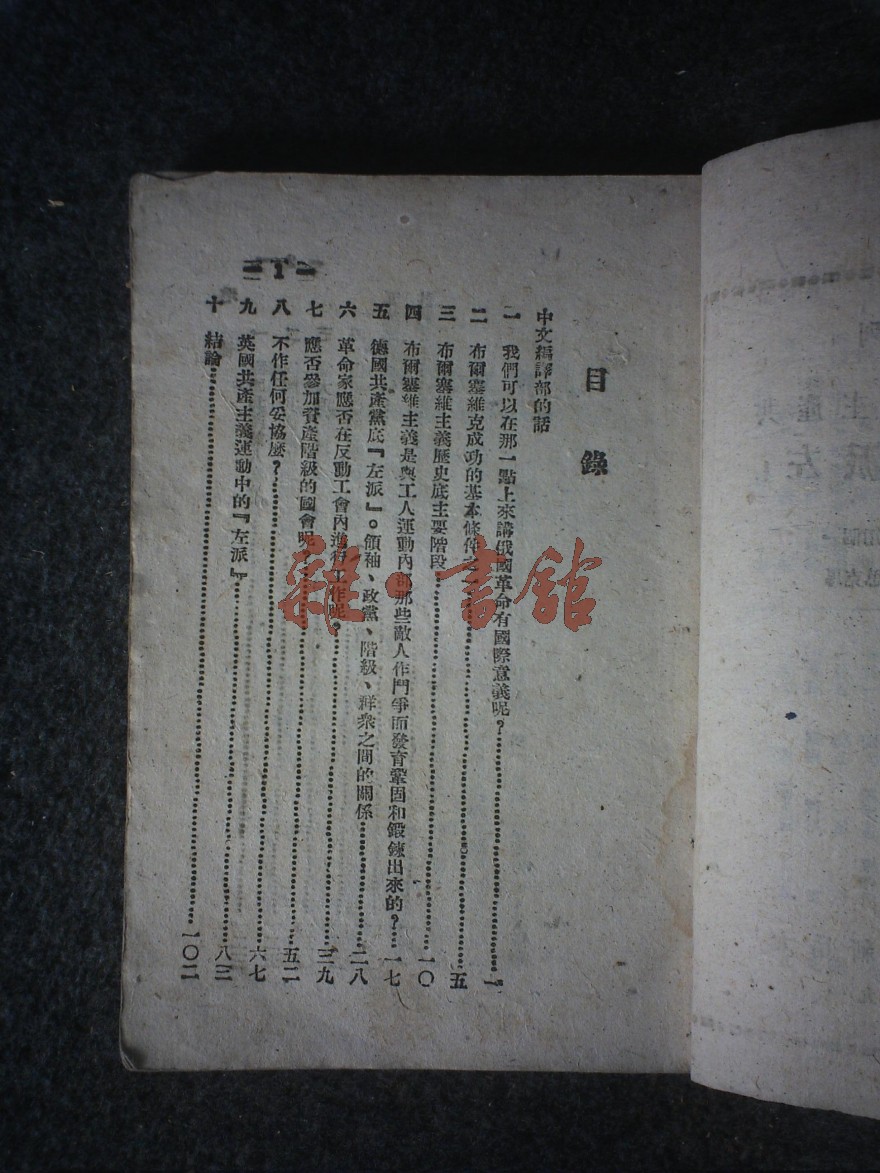 目錄
中文編譯部的話
一 我們可以在那一點上來講俄國革命有國際意義呢？……一
二 布爾塞維克成功的基本條件之一……五
三 布爾塞維主義歷史底主要階段……一〇
四 布爾塞維主義是與工人運動內部那些敵人作鬥爭而發育鞏固和鍛鍊出來的？……一七
五 德國共產黨底『左派』。領袖、政黨、階級、群衆之間的關係……二八
六 革命家應否在反動工會內進行工作呢。……三九
七 應否參加資產階級的國會呢？……五二
八 不作任何妥協麼？……六七
九 英國共產主義運動中的『左派』……八三
十 結論……一〇二
1
雜·書館